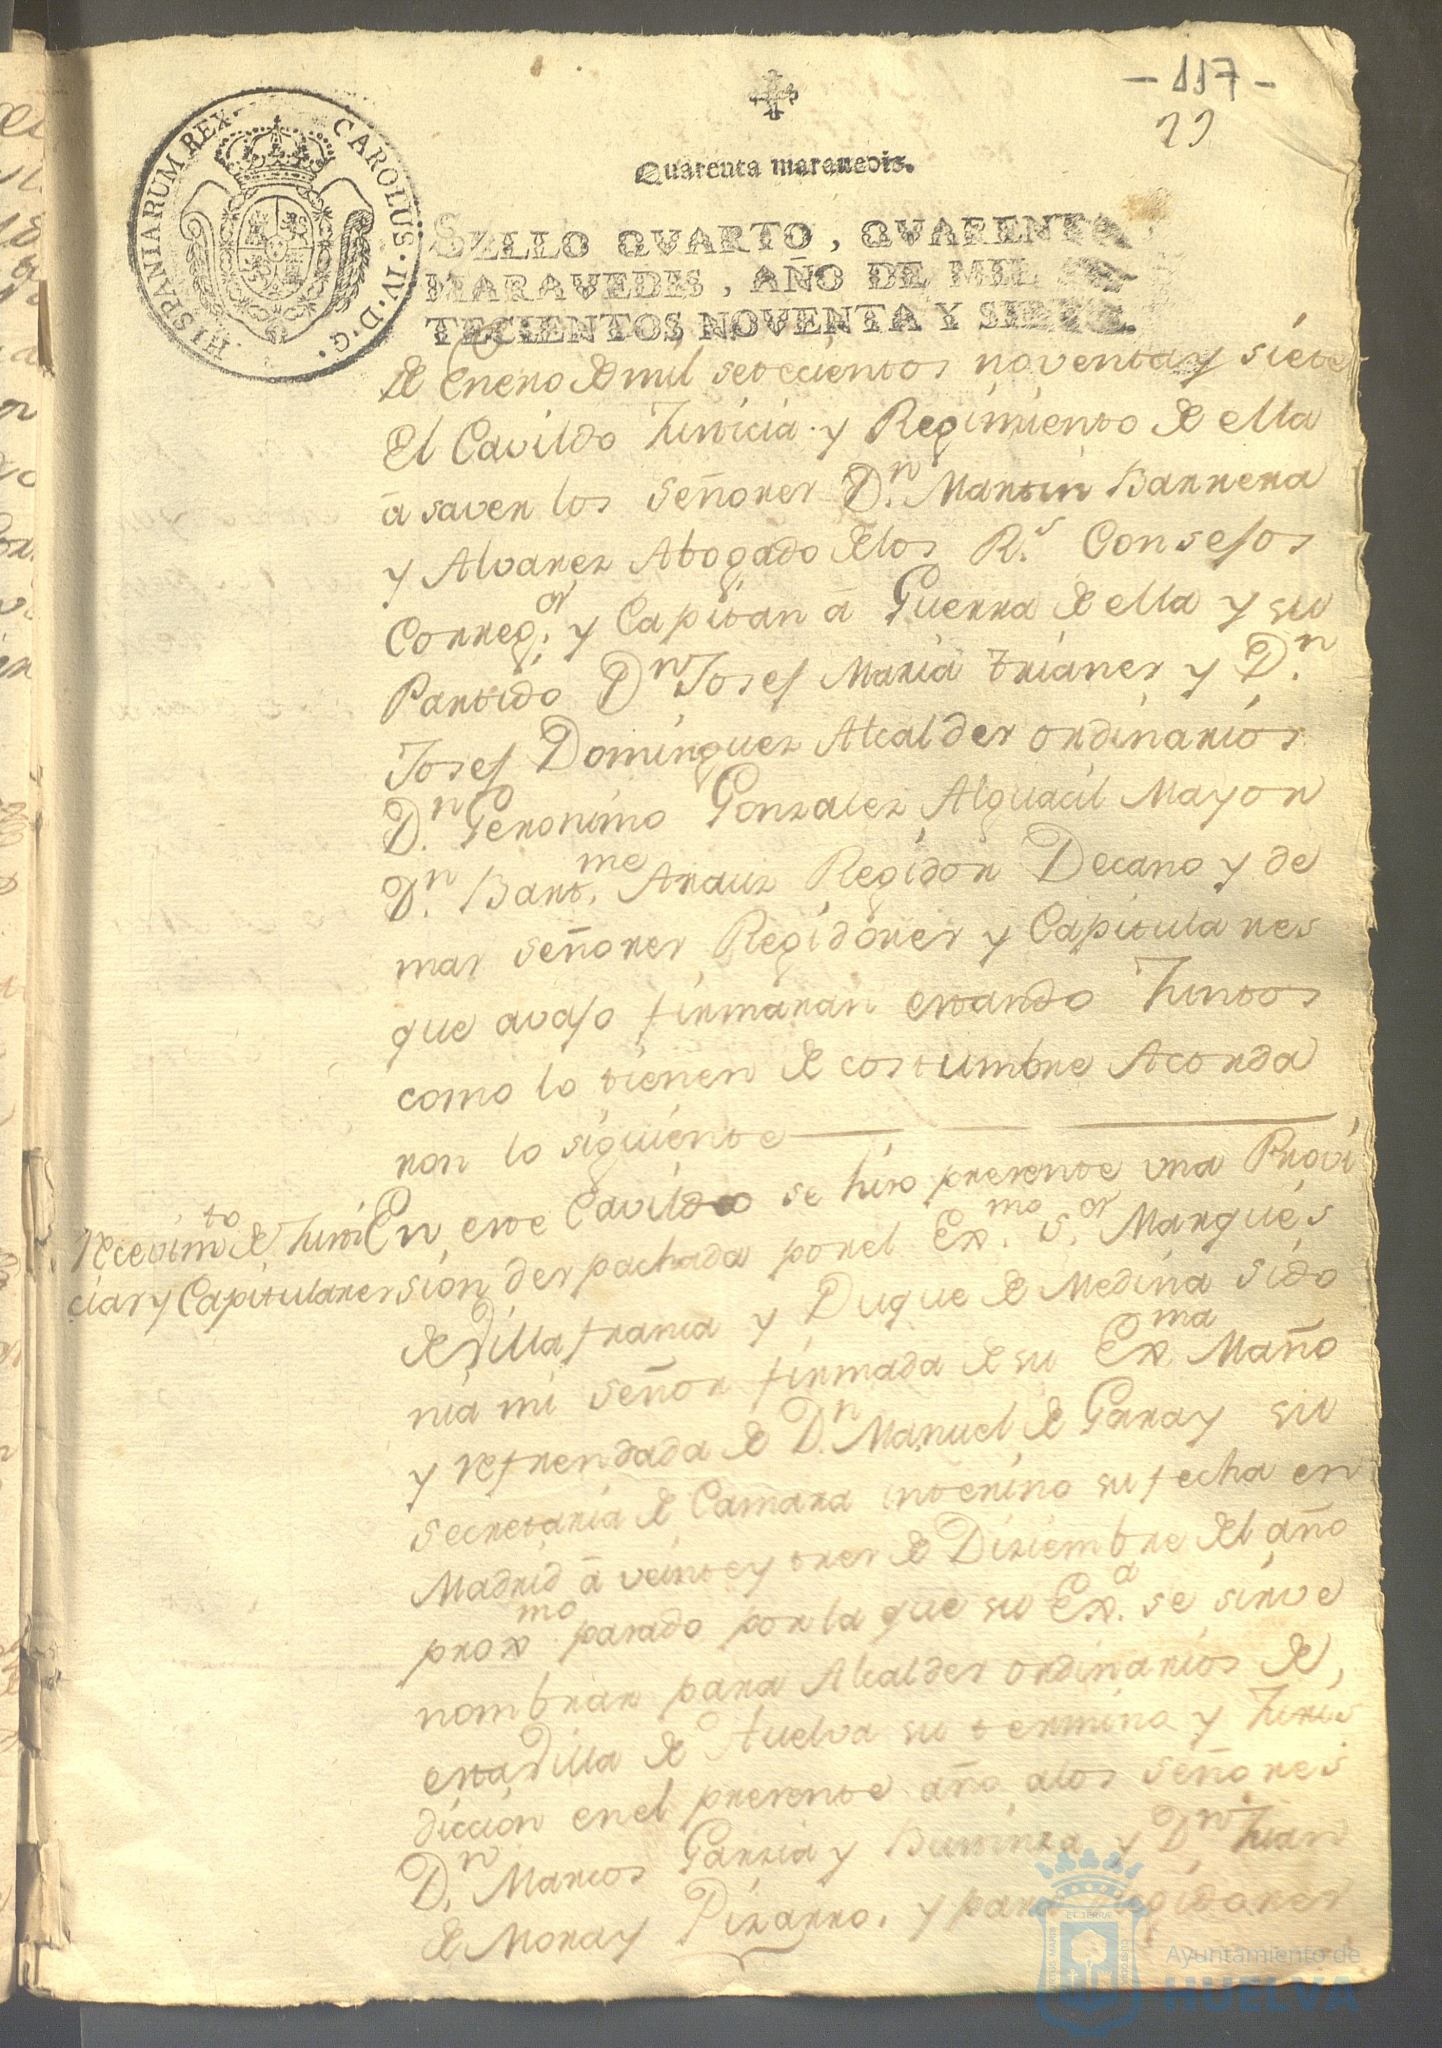 - 117 -
29
HISPANIARUM REX · CAROLUS · IV · D · G ·
Quarenta maravedis.
SELLO QVARTO, QVARENTA
MARAVEDIS, AÑO DE MIL
TECIENTOS NOVENTA Y SIETE.
de Enero de mil setecientos noventa y siete
el Cavildo Justicia y Regimiento de ella
á saver los Señores D.n Martin Barrera
y Alvarez Abogado de los R.s Consejos
Correg.or y Capitan á Guerra de ella y su
Partido D.n Josef Maria Trianes y D.n
Josef Dominguez Alcaldes ordinarios
D.n Geronimo Gonzalez Alguacil Mayor
D.n Bart.me Arauz Regidor Decano y de
mas Señores Regidores y Capitulares
que avajo firmaran estando Juntos
como lo tienen de costumbre Acorda
ron lo siguiente
Recevim.to de Justi
cias y Capitulares
En este Cavildo se hizo presente una Provi
sion despachada por el Ex.mo S.or Marqués
de Villafranca y Duque de Medina Sido
nia mi Señor firmada de su Ex.ma Maño
y refrendada de D.n Manuel de Garay su
secretaria de Camara interino su fecha en
Madrid á veinte y tres de Diziembre del año
prox.mo pasado por la que su Ex.a se sirve
nombrar para Alcaldes ordinarios de
esta Villa de Huelva su termino y Juris
diccion en el presente año a los Señores
D.n Marcos Garzia y y D.n Juan
de Mora y Pizarro. y para Regidores
Ayuntamiento de
HUELVA